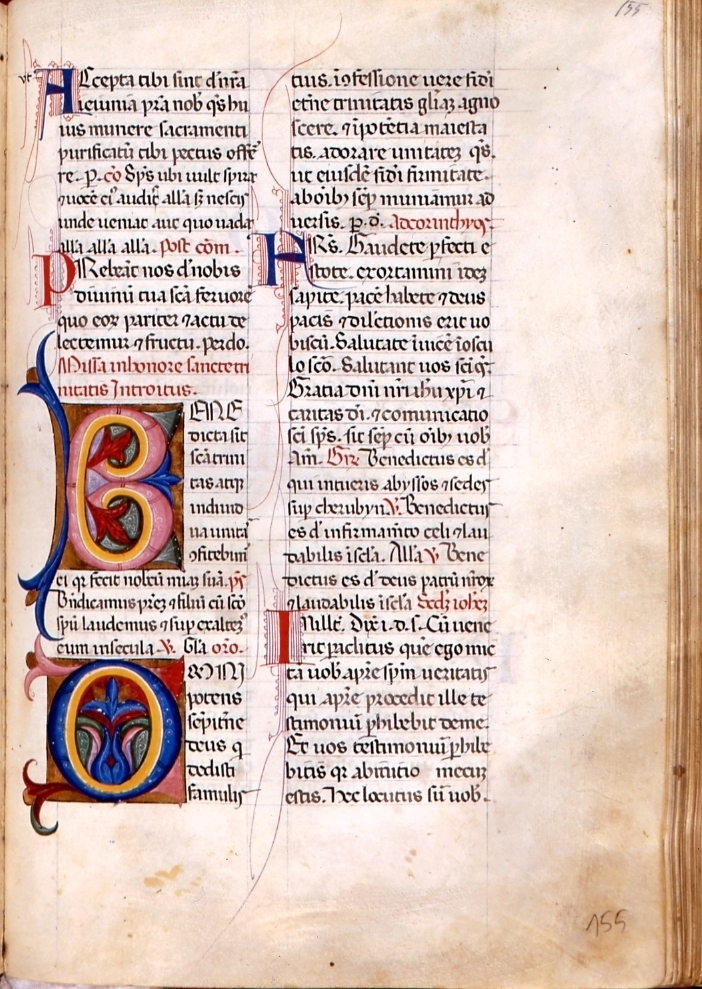 155
Accepta tibi sint dn̄ nr̄a
ieiunia p̄ra nob̄ q̄s hu
ius munere sacramenti
purificatū tibi pectus offer̄
re. p. cō Sp̄s ubi uult spirat
⁊ uocē ei᷒ audit̄ all̄a s; nescis
unde ueniat aut quo uadat
all̄a all̄a all̄a. Post cōm.
PReb̄eāt nos d̄n nobis
diuinū tua sc̄a feruorē
quo eoꝝ pariter ⁊ actu de
lectemur ⁊ fructu. Per dō.
Missa in honore sancte tri
nitatis Introitus.
BENE
dicta sit
sc̄a trini
tas atq̄
indiuid
ua unitas
ꝯfitebim᷒
ei q̄ fecit nob̄cū miā; suā. p̄s
Bn̄dicamus pr̄ez ⁊ filiū cū sc̄o
sp̄u laudemus ⁊ sup exaltez
eum in secula ℣. Gl̄a or̄o.
OMNI
potens
sēpit̄ne
deus q̄
dedisti
famulis
tuis. ī ꝯfessione uere fid̄i
et̄ne trinitatis gl̄iaz agno
scere. ⁊ ī potētia maiesta
tis. adorare unitatez q̄s.
ut eiusdē fid̄i firmitate.
ab oīb᷒ sēp muniamur ad
uersis. p. d. ad corinthyos.
FR̄s. Gaudete p̄fecti e
stote. exortamini idez
sapite. pacē habete ⁊ deus
pacis ⁊ dil̄ctionis erit uo
biscū. Salutate īuicē ī oscu
lo sc̄o. Salutant uos sc̄i q̄.
Gratia dn̄i nr̄i ih̄u xp̄i ⁊
caritas d̄i. ⁊ comunicatio
sc̄i sp̄s. sit sēp cū oīb᷒ uob̄
Am̄. Gr̄. Benedictus es d̄
qui intueris abyssos ⁊ sedes
sup cherubyn ℣. Benedictus
es d̄ in firmam̄to celi ⁊ lau
dabilis ī sc̄la. All̄a ℣ Bene
dictus es d̄ deus patrū nr̄oꝝ
⁊ laudabilis ī sc̄la Scd̄z ioh̄ez
IN ille. Dix̄ i. d. s. Cū uene
rit paclitus quē ego mit
tā uob̄ a pr̄e sp̄m ueritatis
qui a pr̄e procedit ille te
stimoniū phibebit de me.
Et uos testimoniū phibe
bitis q̄ ab initio mecuz
estis. Hec locutus sū uob̄.
155